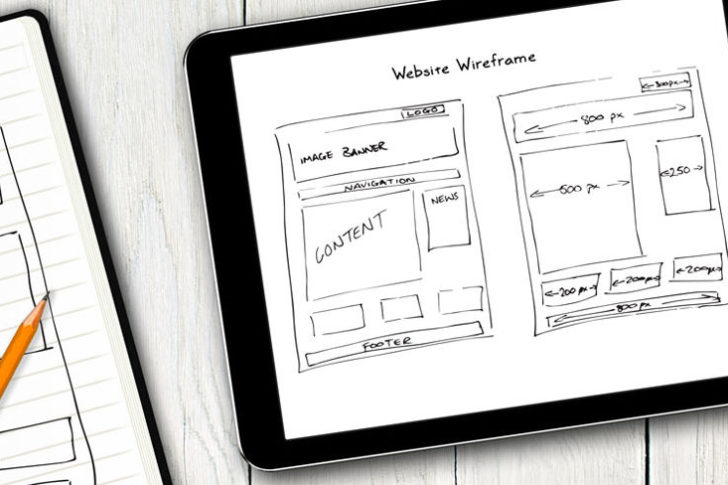 Website Wireframe
LOGO
IMAGE BANNER
NAVIGATION
CONTENT
NEWS
FOOTER
800 px
500 px
250
200 px
200 px
200 px
800 px